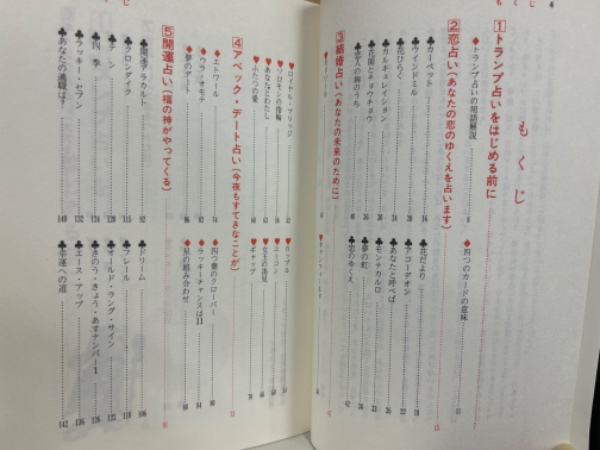 もくじ
4
もくじ
1 トランプ占いをはじめる前に
◆トランプ占いの用語解説 8
◆四つのカードの意味 11
2 恋占い(あなたの恋のゆくえを占います) 13
♣カーペット 14
♣ウインドミル
♣花ひらく
♣カルキュレイション
♣花園とチョウチョウ
♣恋人の胸のうち
♣花だより
♣アコーデオン
♣あなたと呼べば
♣モンテカルロ
♣夢の虹
♣恋のゆくえ
3 結婚占い(あなたの未来のために)
♥ロイヤル・ブリッジ 52
♥ソロモンの指輪 56
♥あなたとわたし
♥ふたつの愛
♥カップル
♥ユーコン
♥女王の謁見
♥ギャップ
4 アベック・デート占い(今夜もすてきなことが)
♦エトワール 74
♦ウラ・オモテ 82
♦夢のデート 86
♦四つ葉のクローバー 80
♦ラッキーチャンスは11 84
♦星の組み合わせ 88
5 開運占い(福の神がやってくる) 91
♣開運アラカルト 92
♣クロンダイク 115
♣テン 120
♣四季 124
♣ラッキー・セブン 132
♣あなたの適職は? 140
♣ドリーム 106
♣フレール 118
♣オールド・ラング・サイン 122
♣きのう・きょう・あすナンバー1 126
♣エース・アップ 136
♣幸運への道 142